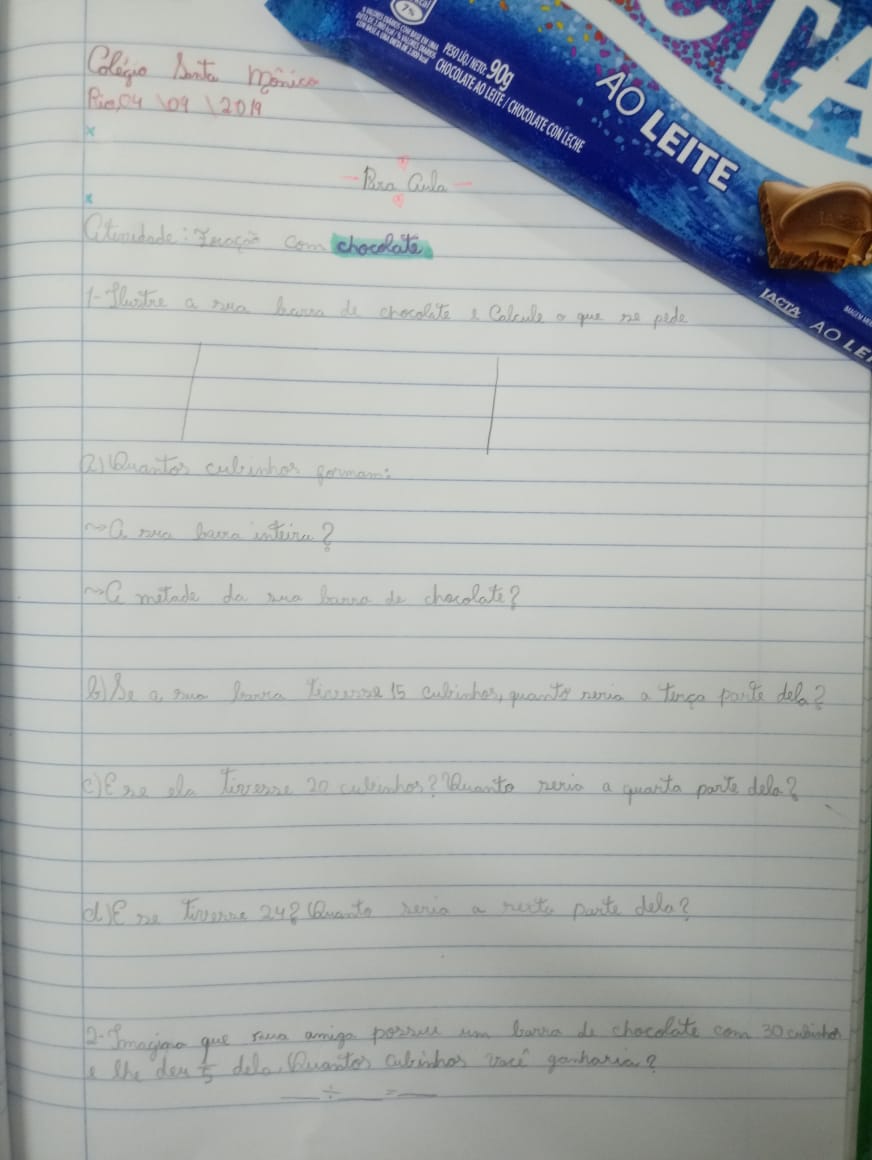 kcal
7%
% VALORES DIÁRIOS COM BASE EM UMA
PESO LÍQ./NETO: 90g
CHOCOLATE AO LEITE / CHOCOLATE CON LECHE
CTA
AO LEITE
LACTA AO LEI
Colégio Santa Mônica
Rio, 04 \ 09 \ 2019
x
- Para Aula -
x
Atividade: Fração com chocolate
1- Ilustre a sua barra de chocolate e Calcule o que se pede
a) Quantos cubinhos formam:
~> A sua barra inteira?
~> A metade da sua barra de chocolate?
b) Se a sua barra tivesse 15 cubinhos, quanto seria a terça parte dela?
c) E se ela tivesse 20 cubinhos? Quanto seria a quarta parte dela?
d) E se tivesse 24? Quanto seria a sexta parte dela?
2- Imagina que sua amiga possui um barra de chocolate com 30 cubinhos
e lhe deu 1/5 dela. Quantos cubinhos você ganharia?
___ ÷ ___ = ___